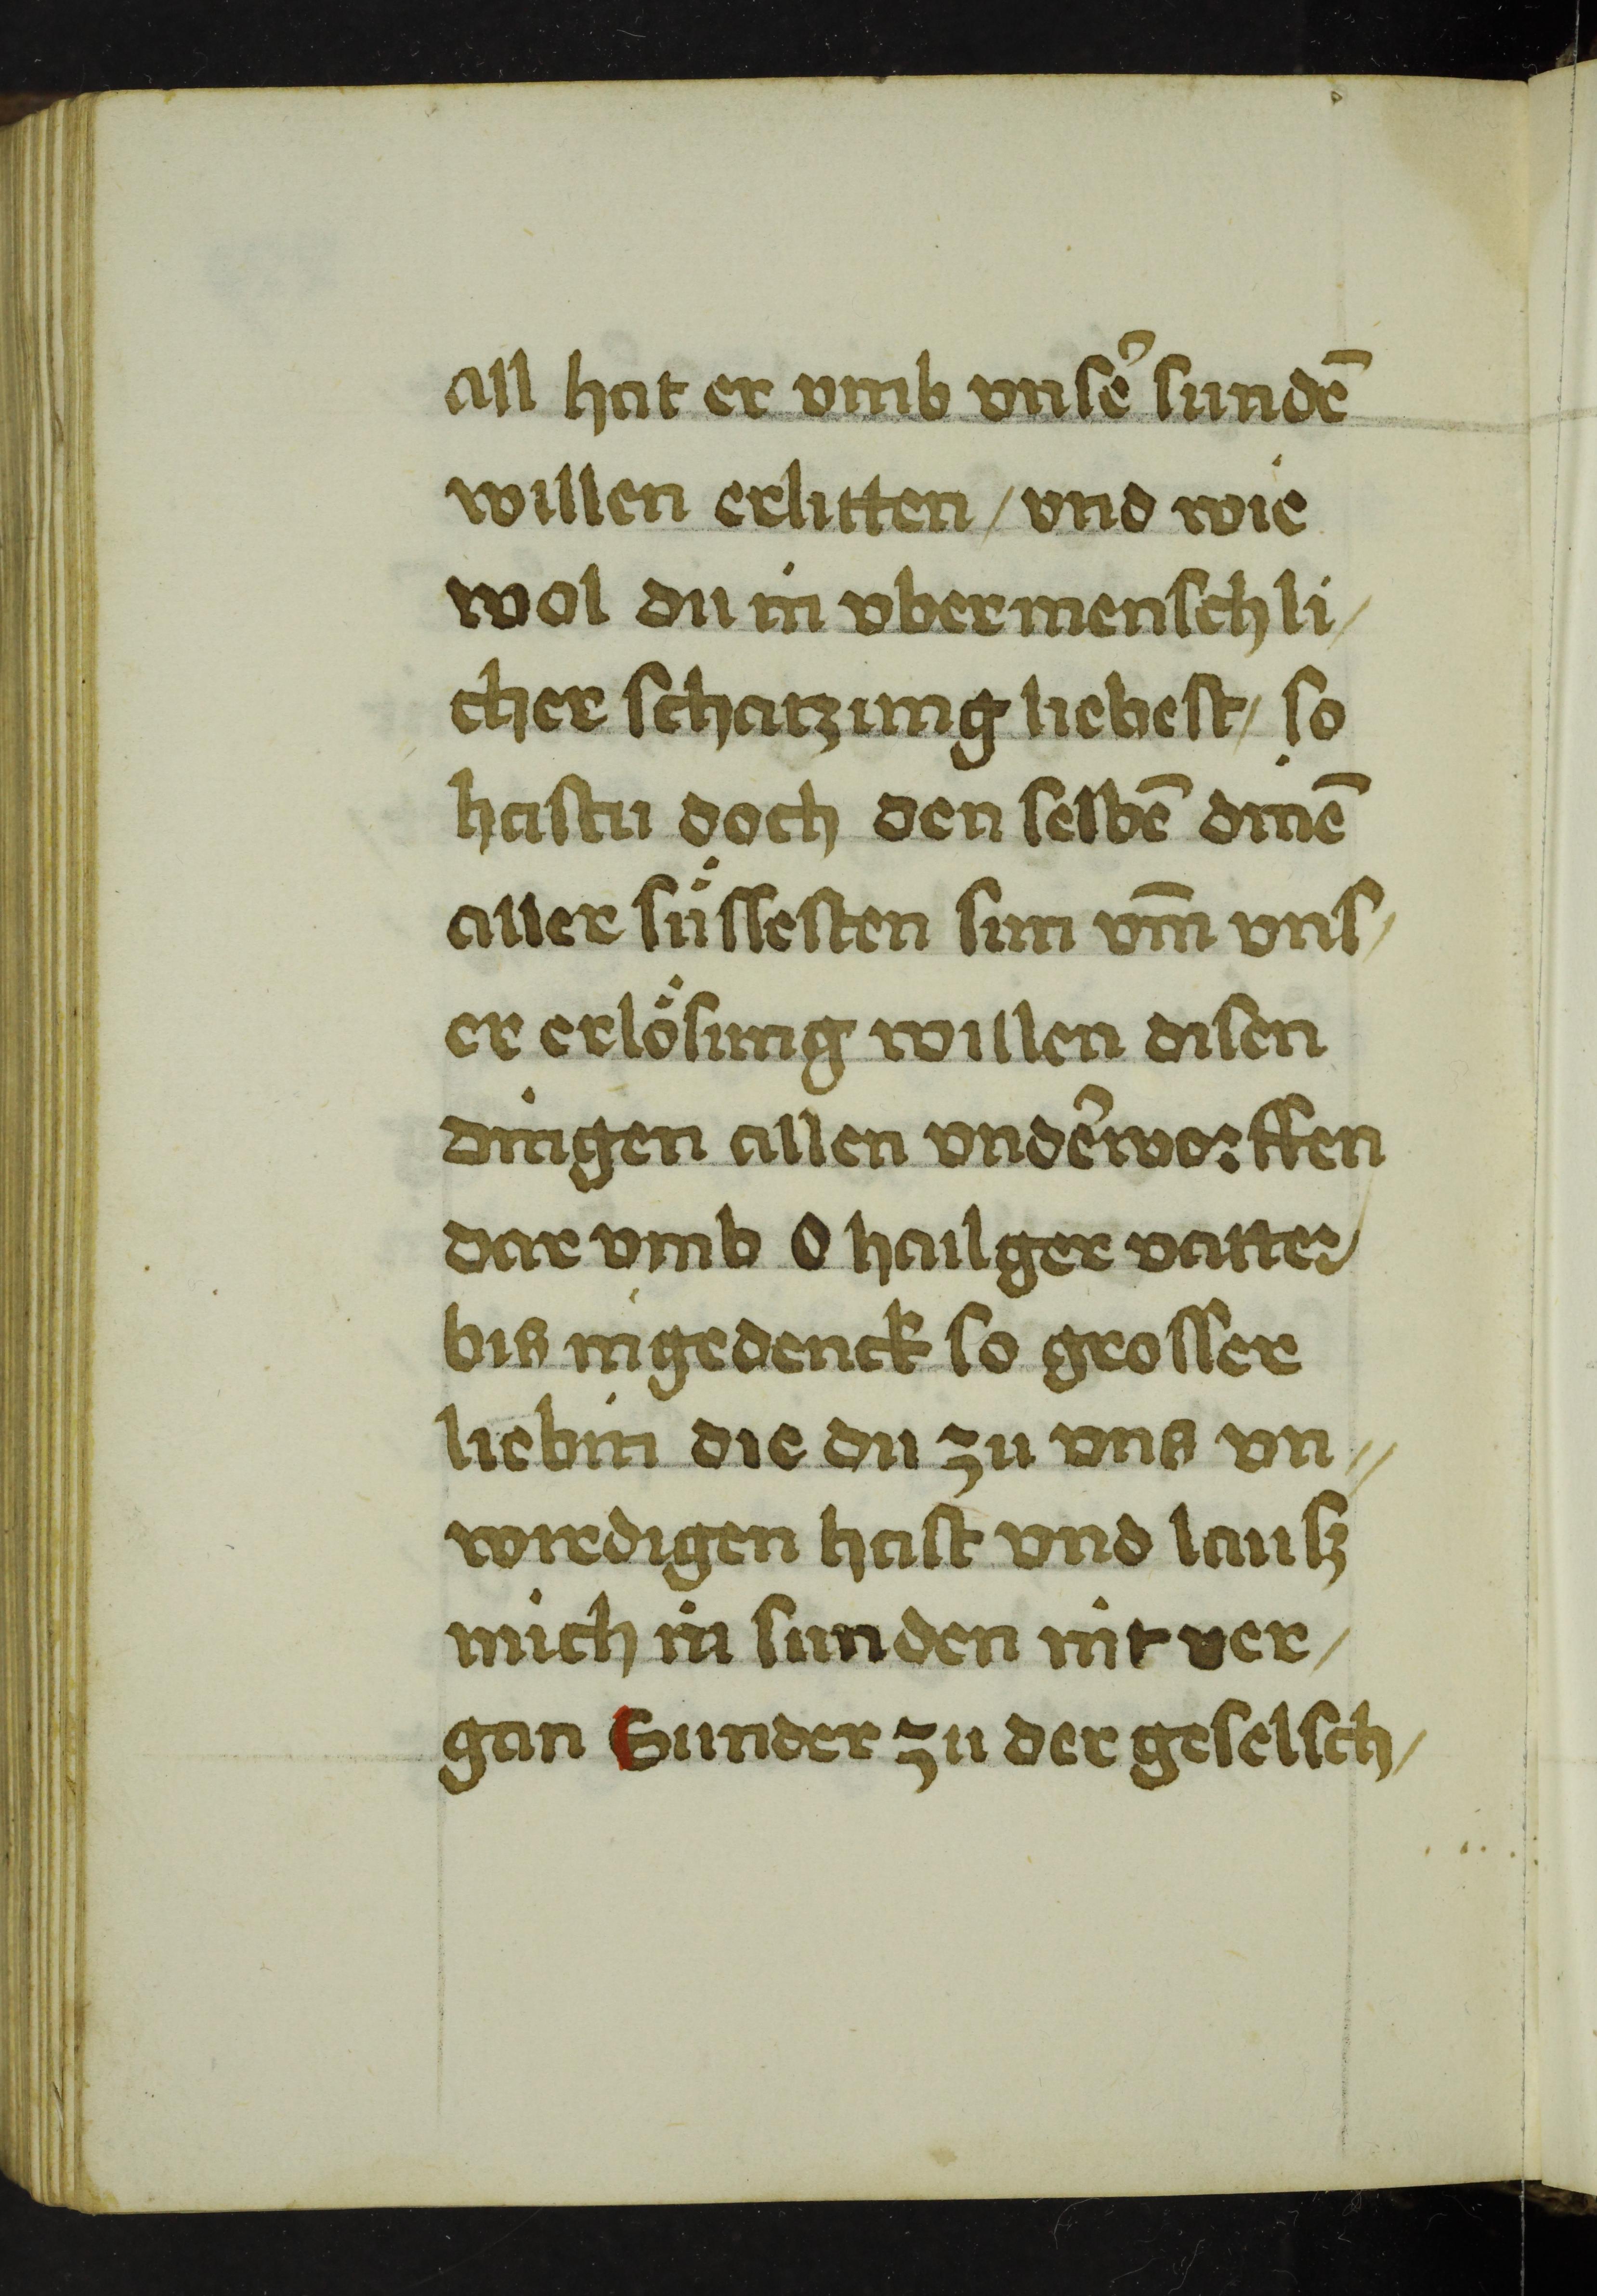 all hat er vmb vnſe᷑ ſundē
willen erlitten / vnd wie
wol du in vber menſchli /
cher ſchatzung liebeſt / ſo
haſtu doch den ſelbē dinē
aller ſüſſeſten ſun vm̄ vnſ /
er erlöſung willen diſen
dingen allen vnde᷑worffen
dar vmb O hailger vatter /
bis ingedenck ſo groſſer
liebin die du zu vns vn //
wirdigen haſt vnd lauſz
mich in ſunden nit ver /
gan Sunder zu der geſelſch /